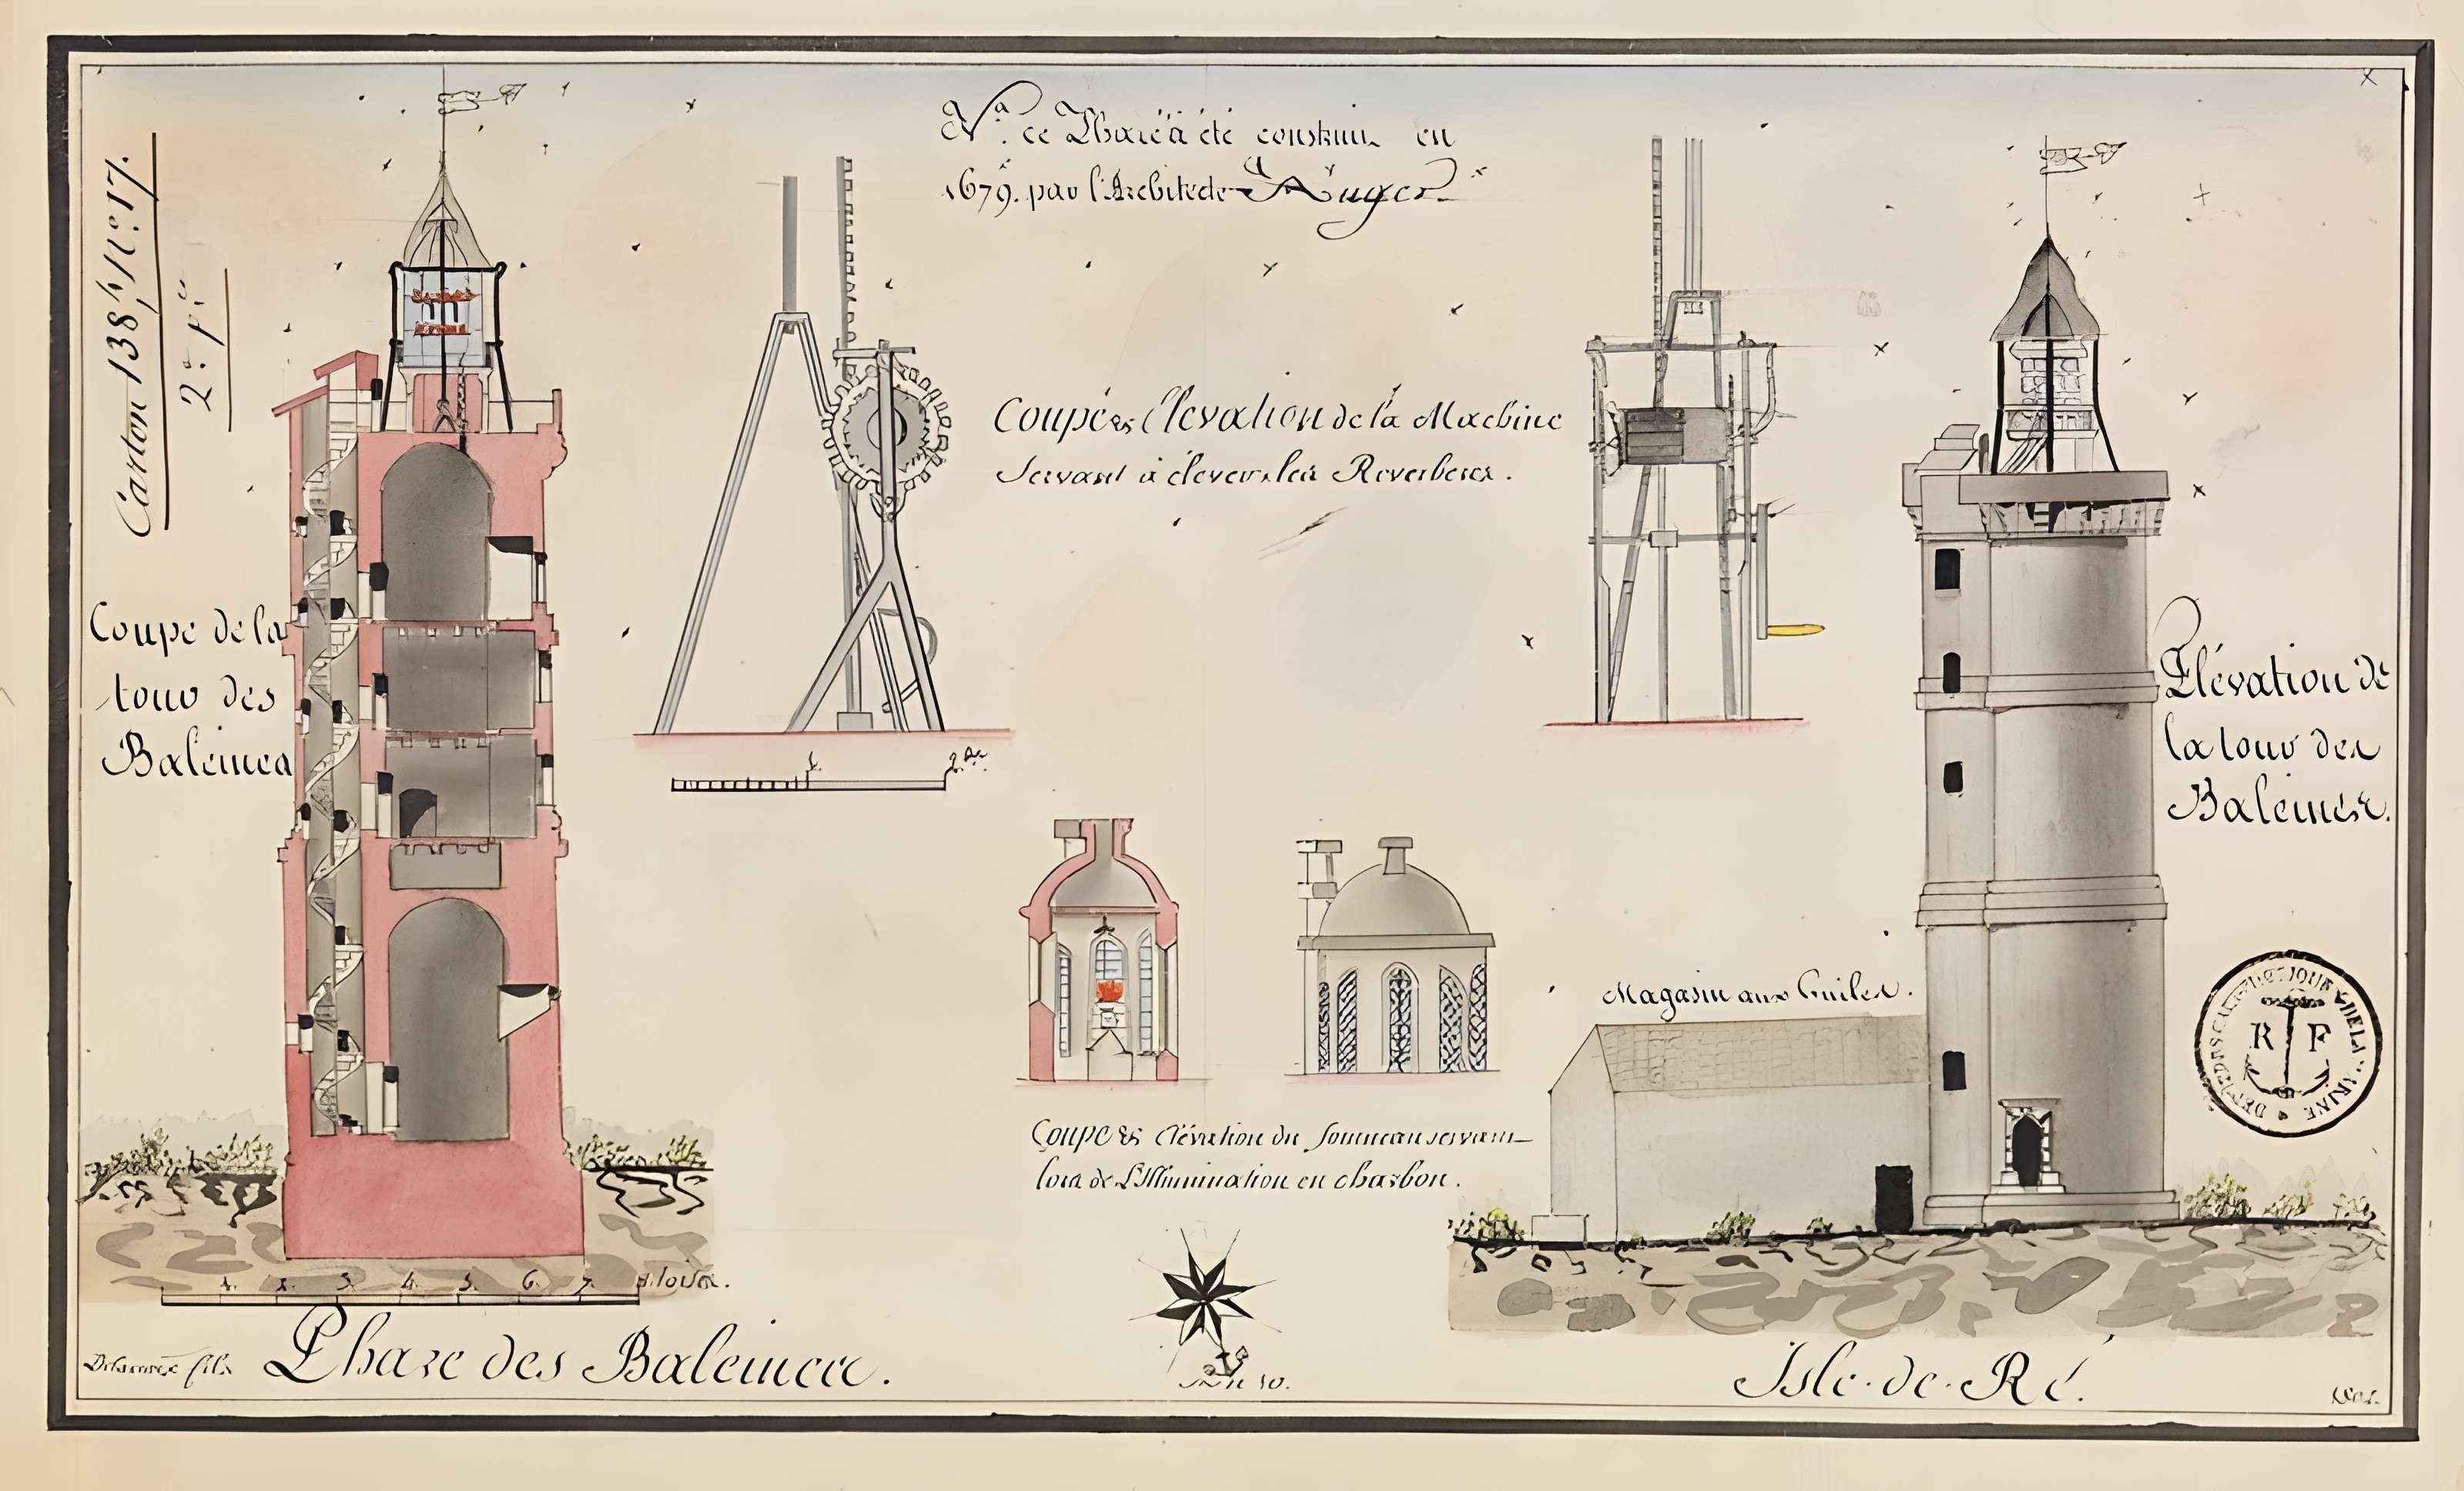 Carton 138 N° 17.
2e. pce.
Na. ce Phare a été construit en
1679. par l'Architecte Auger.
Coupe et Elévation de la Machine
Servant à élever les Reverberes.
Coupe de la
tour des
Baleines
Elévation de
la tour des
Baleines.
1. 2.
Magasin aux huiles.
R F
Coupe et élévation du fourneau servant
lors de l'Illumination en charbon.
1. 2. 3. 4. 5. 6. 7. 8 toises.
Phare des Baleines.
fils
An 10.
Isle-de-Ré.